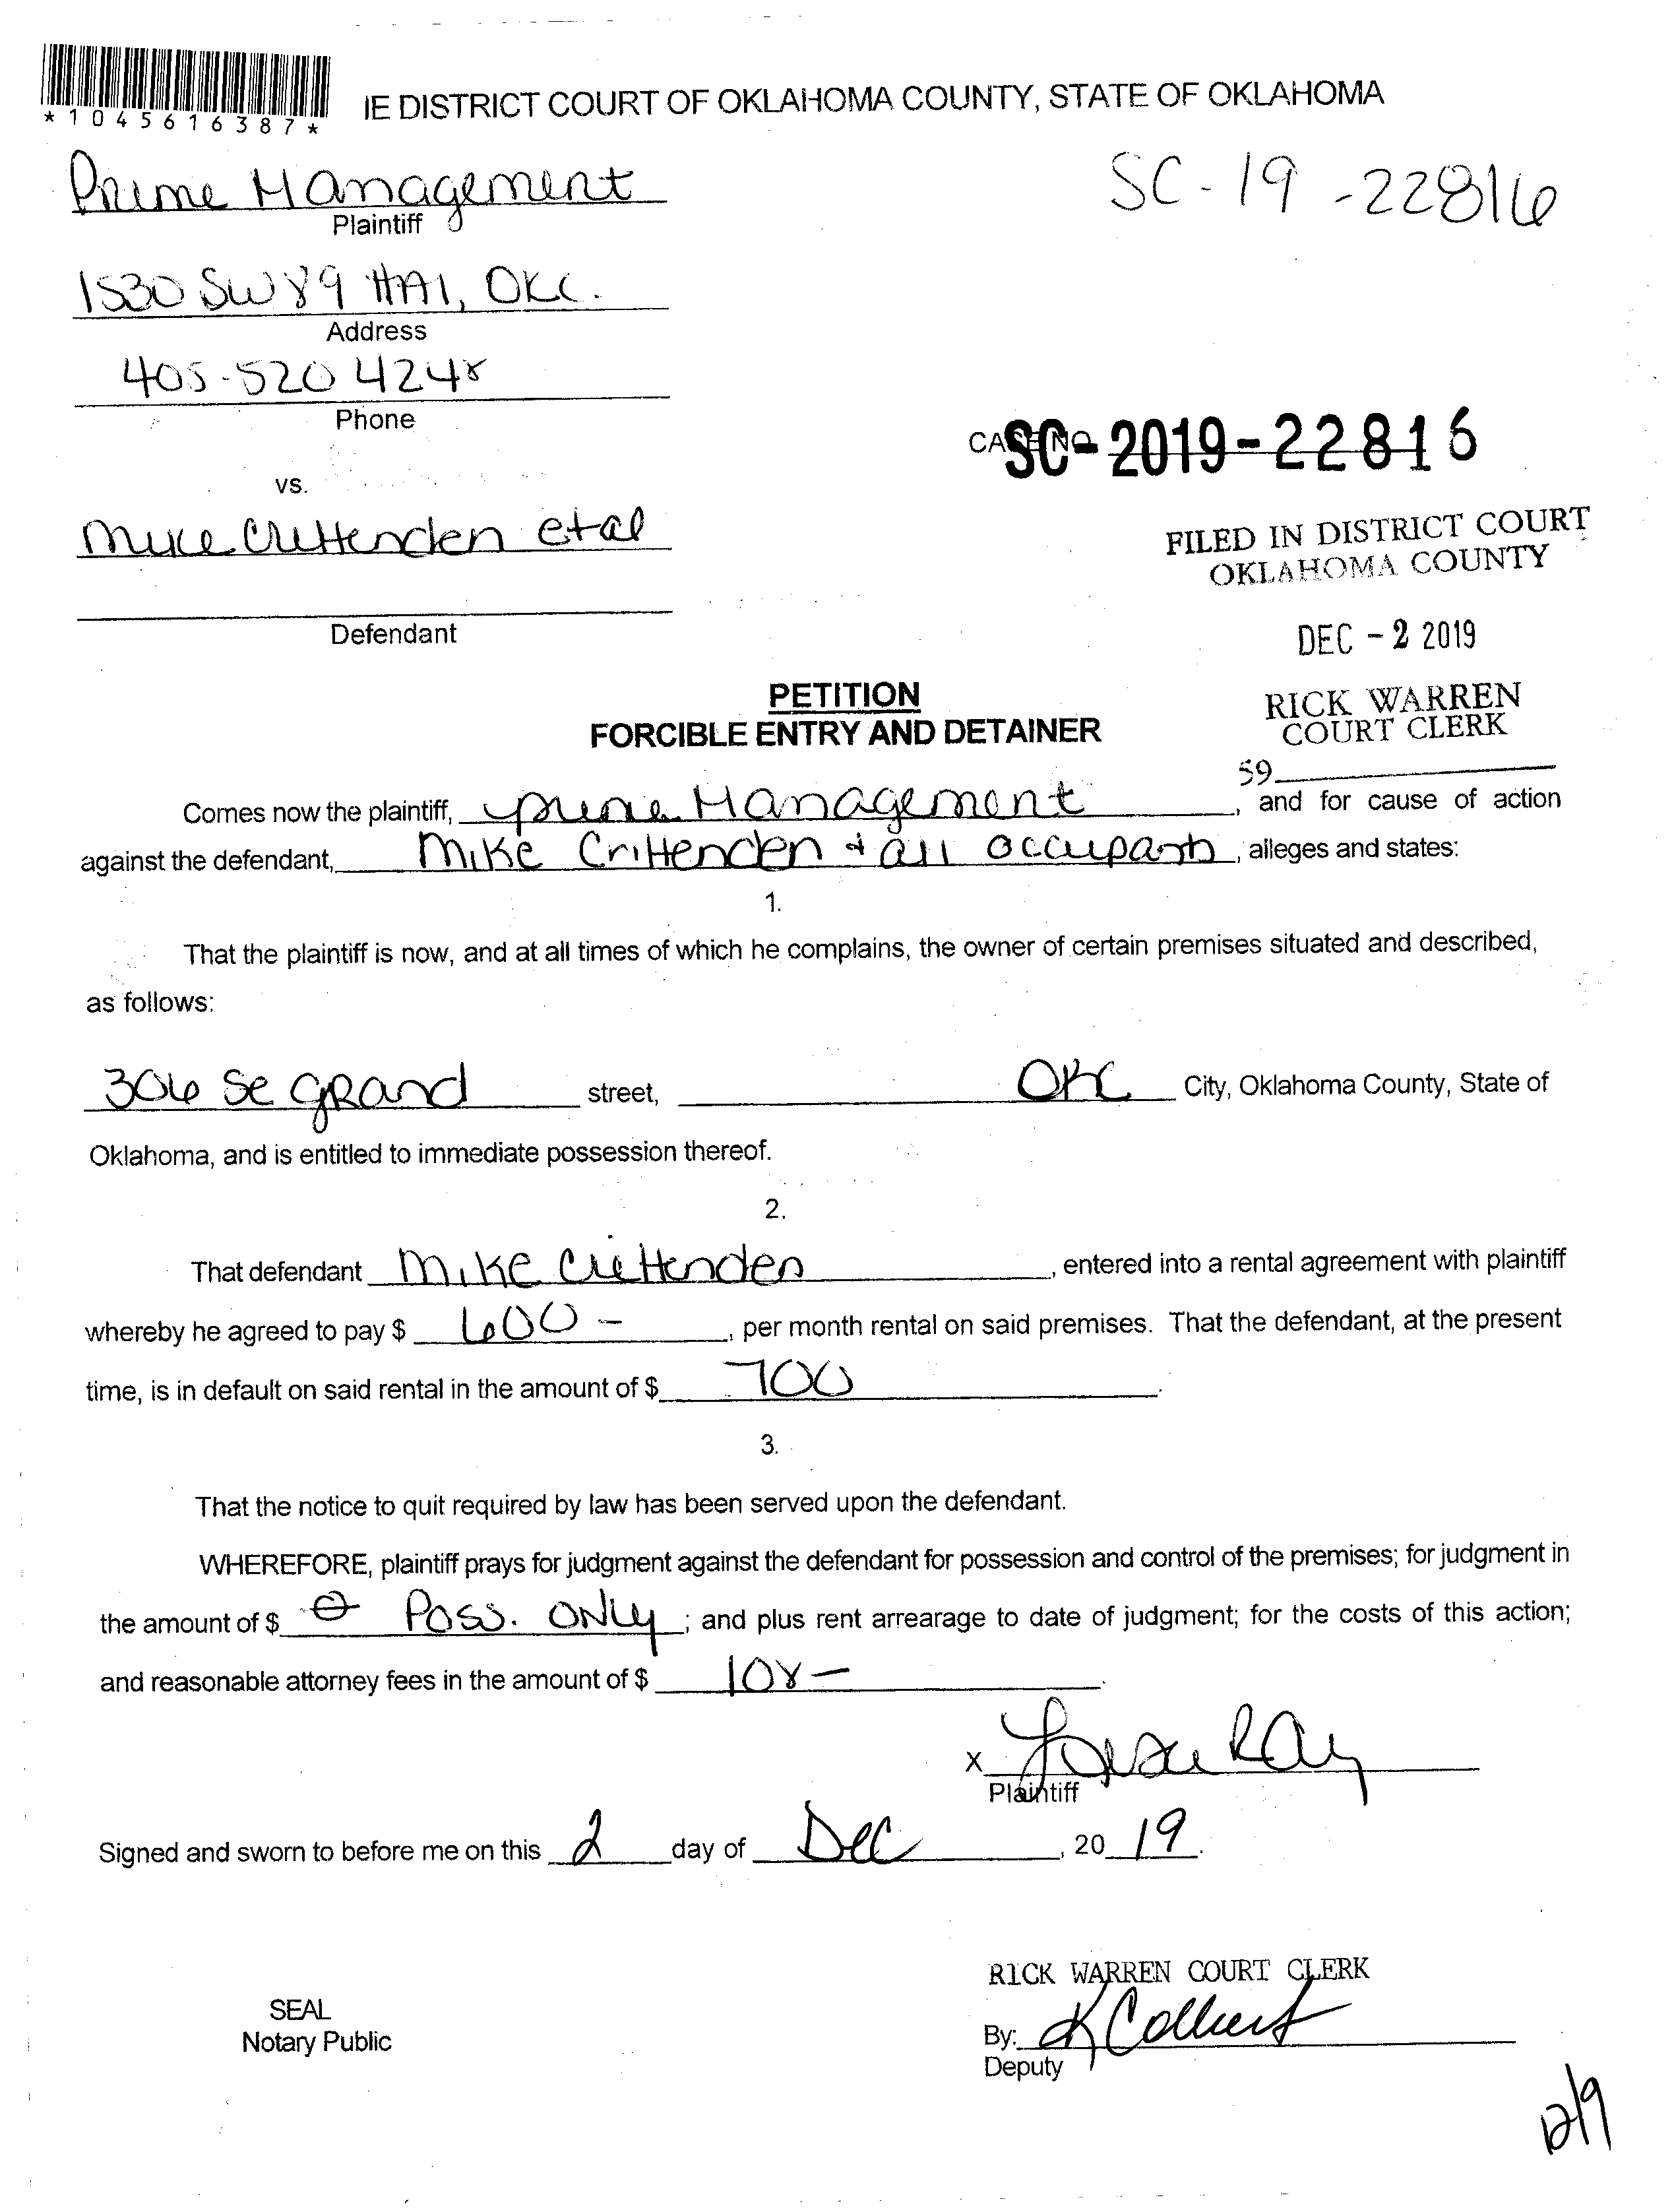 *1045616387*
IE DISTRICT COURT OF OKLAHOMA COUNTY, STATE OF OKLAHOMA
Prime Management
Plaintiff
SC-19-22816
1530 SW 89 #A1, OKC.
Address
405-520 4248
Phone
CASE NO.
SC-2019-22816
vs.
Mike Crittenden et al
Defendant
FILED IN DISTRICT COURT
OKLAHOMA COUNTY
DEC - 2 2019
RICK WARREN
COURT CLERK
59
PETITION
FORCIBLE ENTRY AND DETAINER
Comes now the plaintiff, Prime Management, and for cause of action
against the defendant, Mike Crittenden + all occupants, alleges and states:
1.
That the plaintiff is now, and at all times of which he complains, the owner of certain premises situated and described,
as follows:
306 SE GRAND street, OKC City, Oklahoma County, State of
Oklahoma, and is entitled to immediate possession thereof.
2.
That defendant Mike Crittenden, entered into a rental agreement with plaintiff
whereby he agreed to pay $ 600 -, per month rental on said premises. That the defendant, at the present
time, is in default on said rental in the amount of $ 700.
3.
That the notice to quit required by law has been served upon the defendant.
WHEREFORE, plaintiff prays for judgment against the defendant for possession and control of the premises; for judgment in
the amount of $ 0 Poss. ONLY; and plus rent arrearage to date of judgment; for the costs of this action;
and reasonable attorney fees in the amount of $ 108 -.
X Ray
Plaintiff
Signed and sworn to before me on this 2 day of Dec, 20 19.
RICK WARREN COURT CLERK
SEAL
Notary Public
By: K Colbert
Deputy
12/9